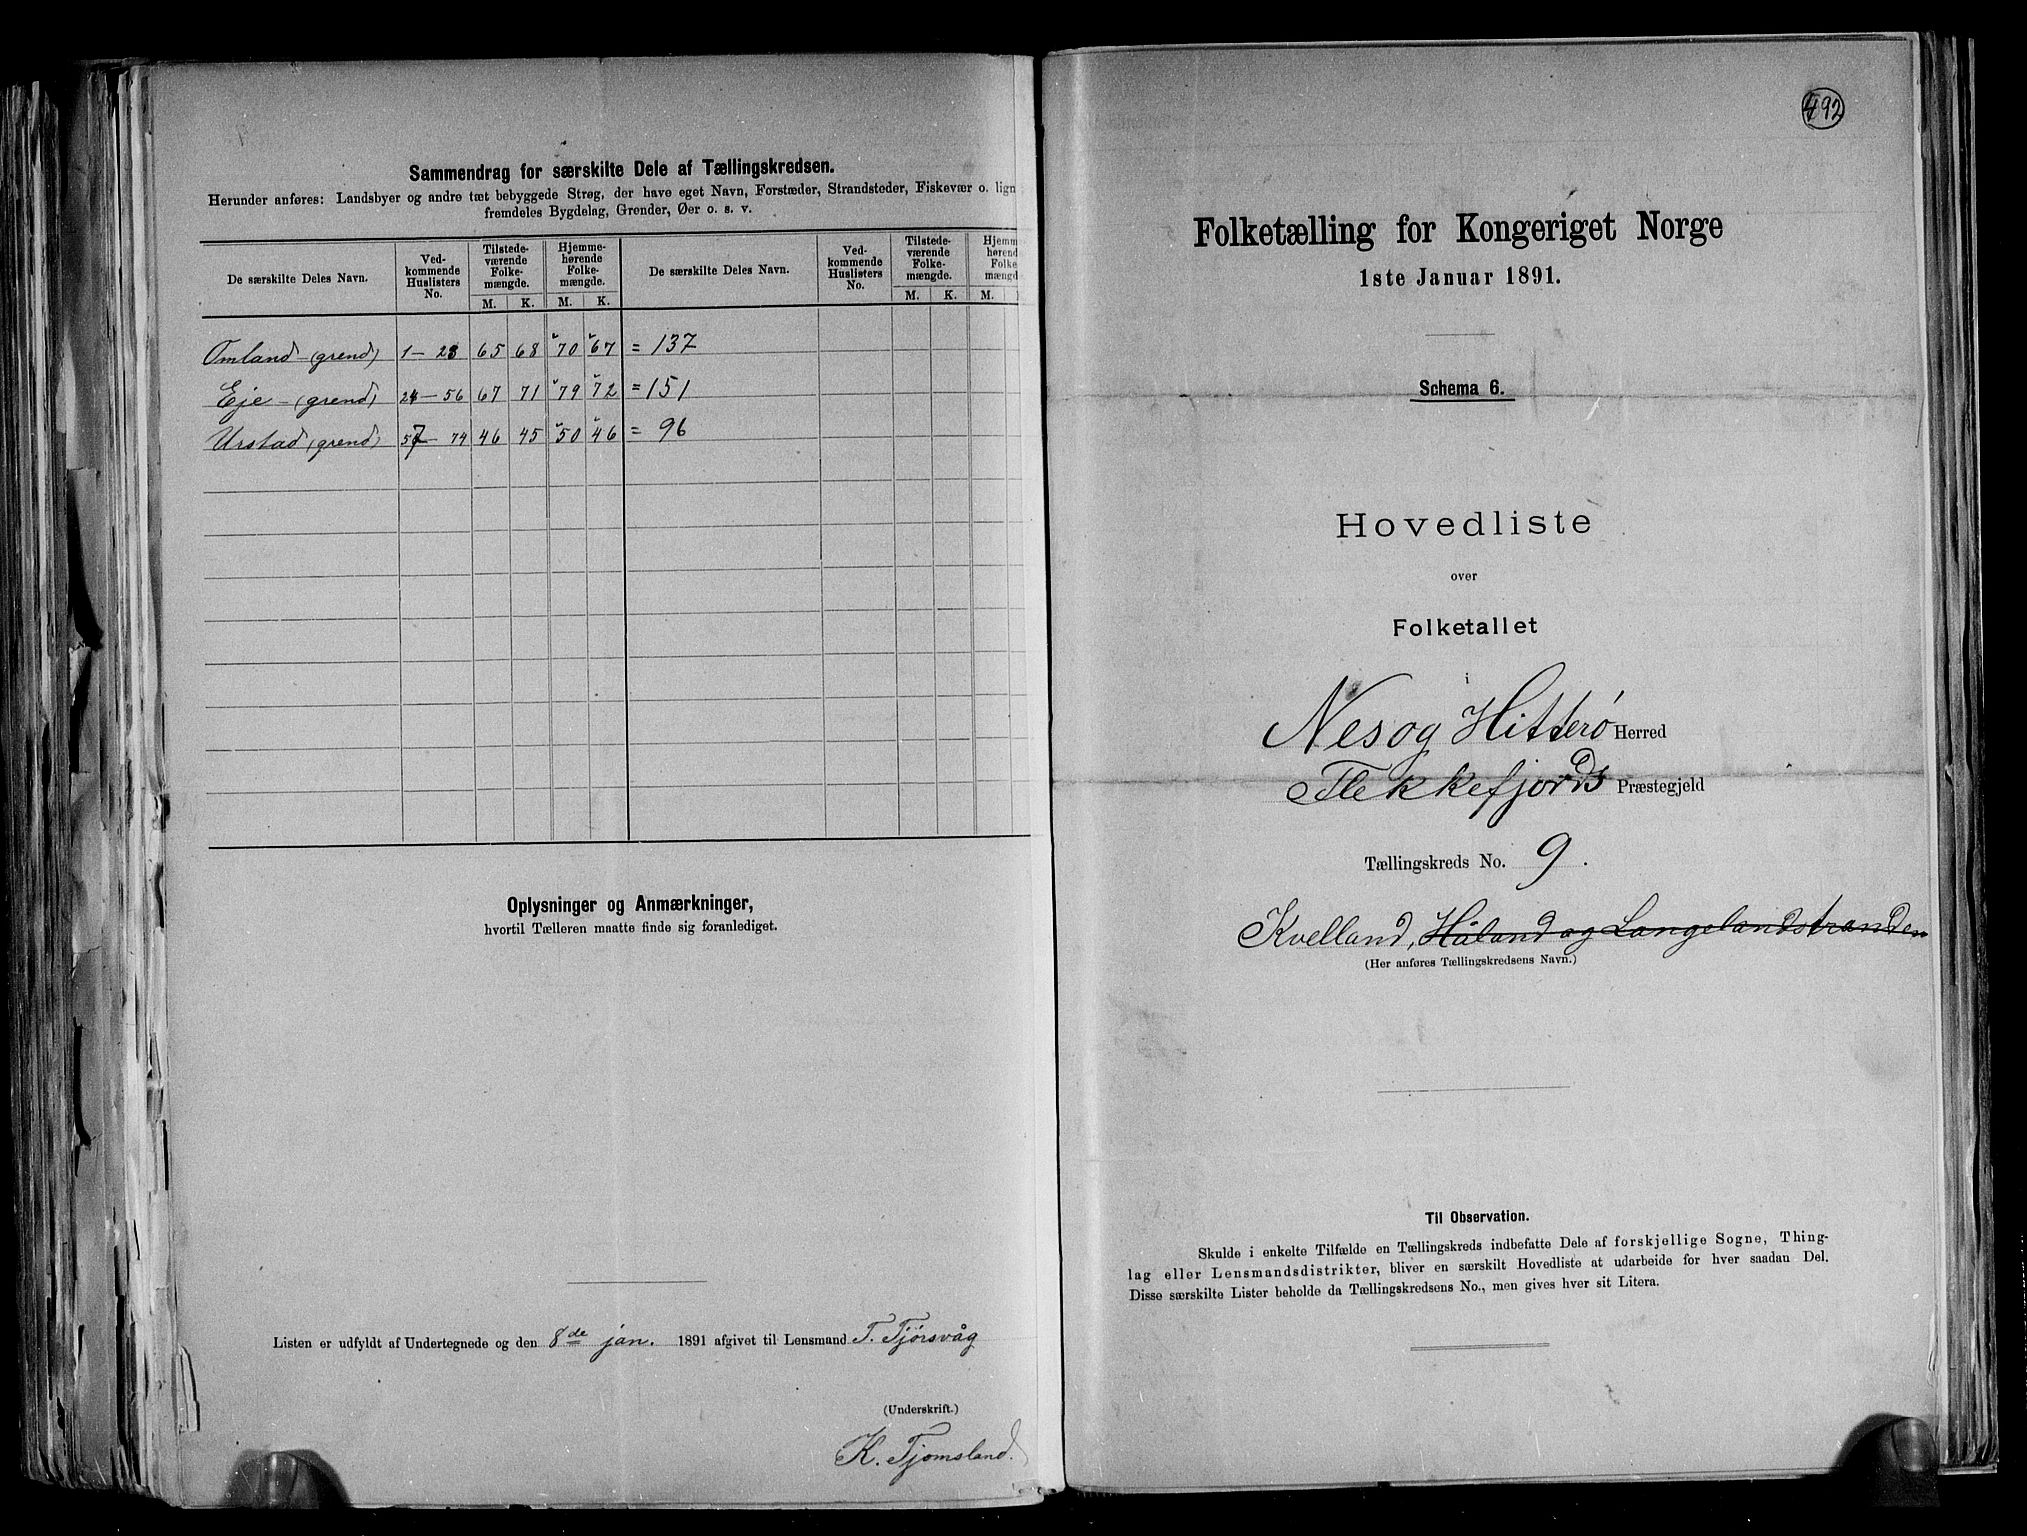 Sammendrag for særskilte Dele af Tællingskredsen.
Herunder anføres: Landsbyer og andre tæt bebyggede Strøg, der have eget Navn, Forstæder, Strandsteder, Fiskevær o. lign
fremdeles Bygdelag, Grender, Øer o. s. v.
De særskilte Deles Navn. Ved-kommende Huslisters No. Tilstede-værende Folke-mængde. Hjemme-hørende Folke-mængde. De særskilte Deles Navn. Ved-kommende Huslisters No. Tilstede-værende Folke-mængde. Hjemm hørend Folke mængd
M. K. M. K. M. K. M.
Omland (grend) 1 - 23 65 68 70 67 = 137
Eje - (grend) 24 - 56 67 71 79 72 = 151
Urstad (grend) 57 - 74 46 45 50 46 = 96
Oplysninger og Anmærkninger,
hvortil Tælleren maatte finde sig foranlediget.
Listen er udfyldt af Undertegnede og den 8de jan. 1891 afgivet til Lensmand T. Tjørsvåg
(Underskrift.)
K. Tjomsland.
492
Folketælling for Kongeriget Norge
1ste Januar 1891.
Schema 6.
Hovedliste
over
Folketallet
i
Nes og Hitterø Herred
Flekkefjords Præstegjeld
Tællingskreds No. 9.
Kvelland, Håland og Langelandstranden
(Her anføres Tællingskredsens Navn.)
Til Observation.
Skulde i enkelte Tilfælde en Tællingskreds indbefatte Dele af forskjellige Sogne, Thing-
lag eller Lensmandsdistrikter, bliver en særskilt Hovedliste at udarbeide for hver saadan Del.
Disse særskilte Lister beholde da Tællingskredsens No., men gives hver sit Litera.